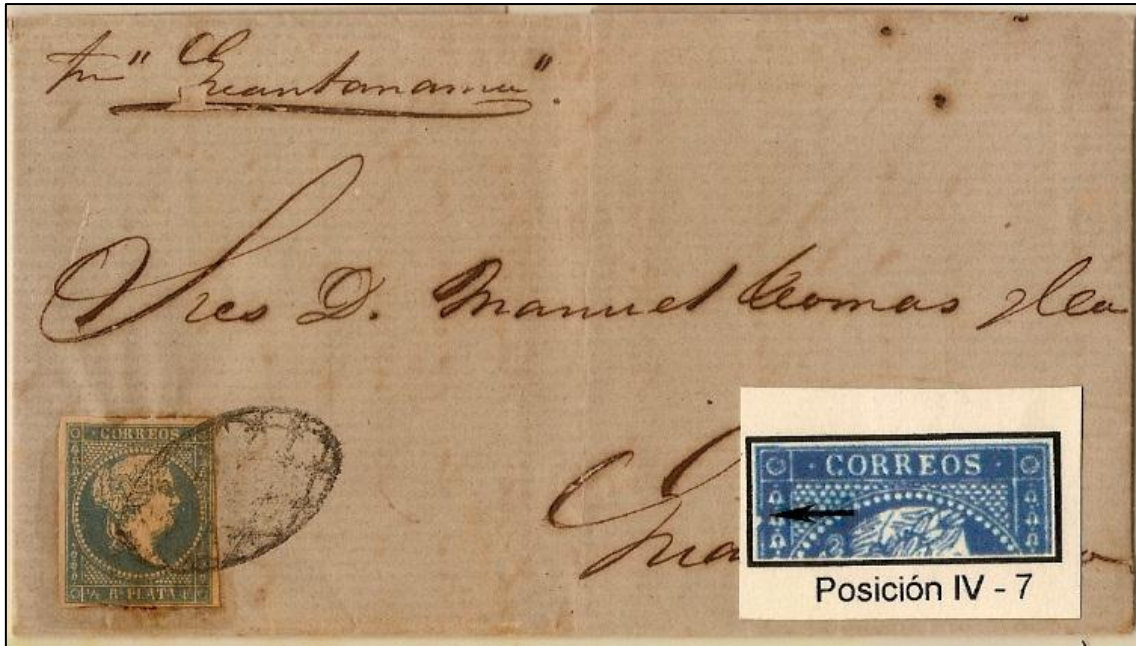 "Guantanamo".
Sres D. Manuel Comas y Ca
CORREOS
PLATA
CORREOS
Posición IV - 7